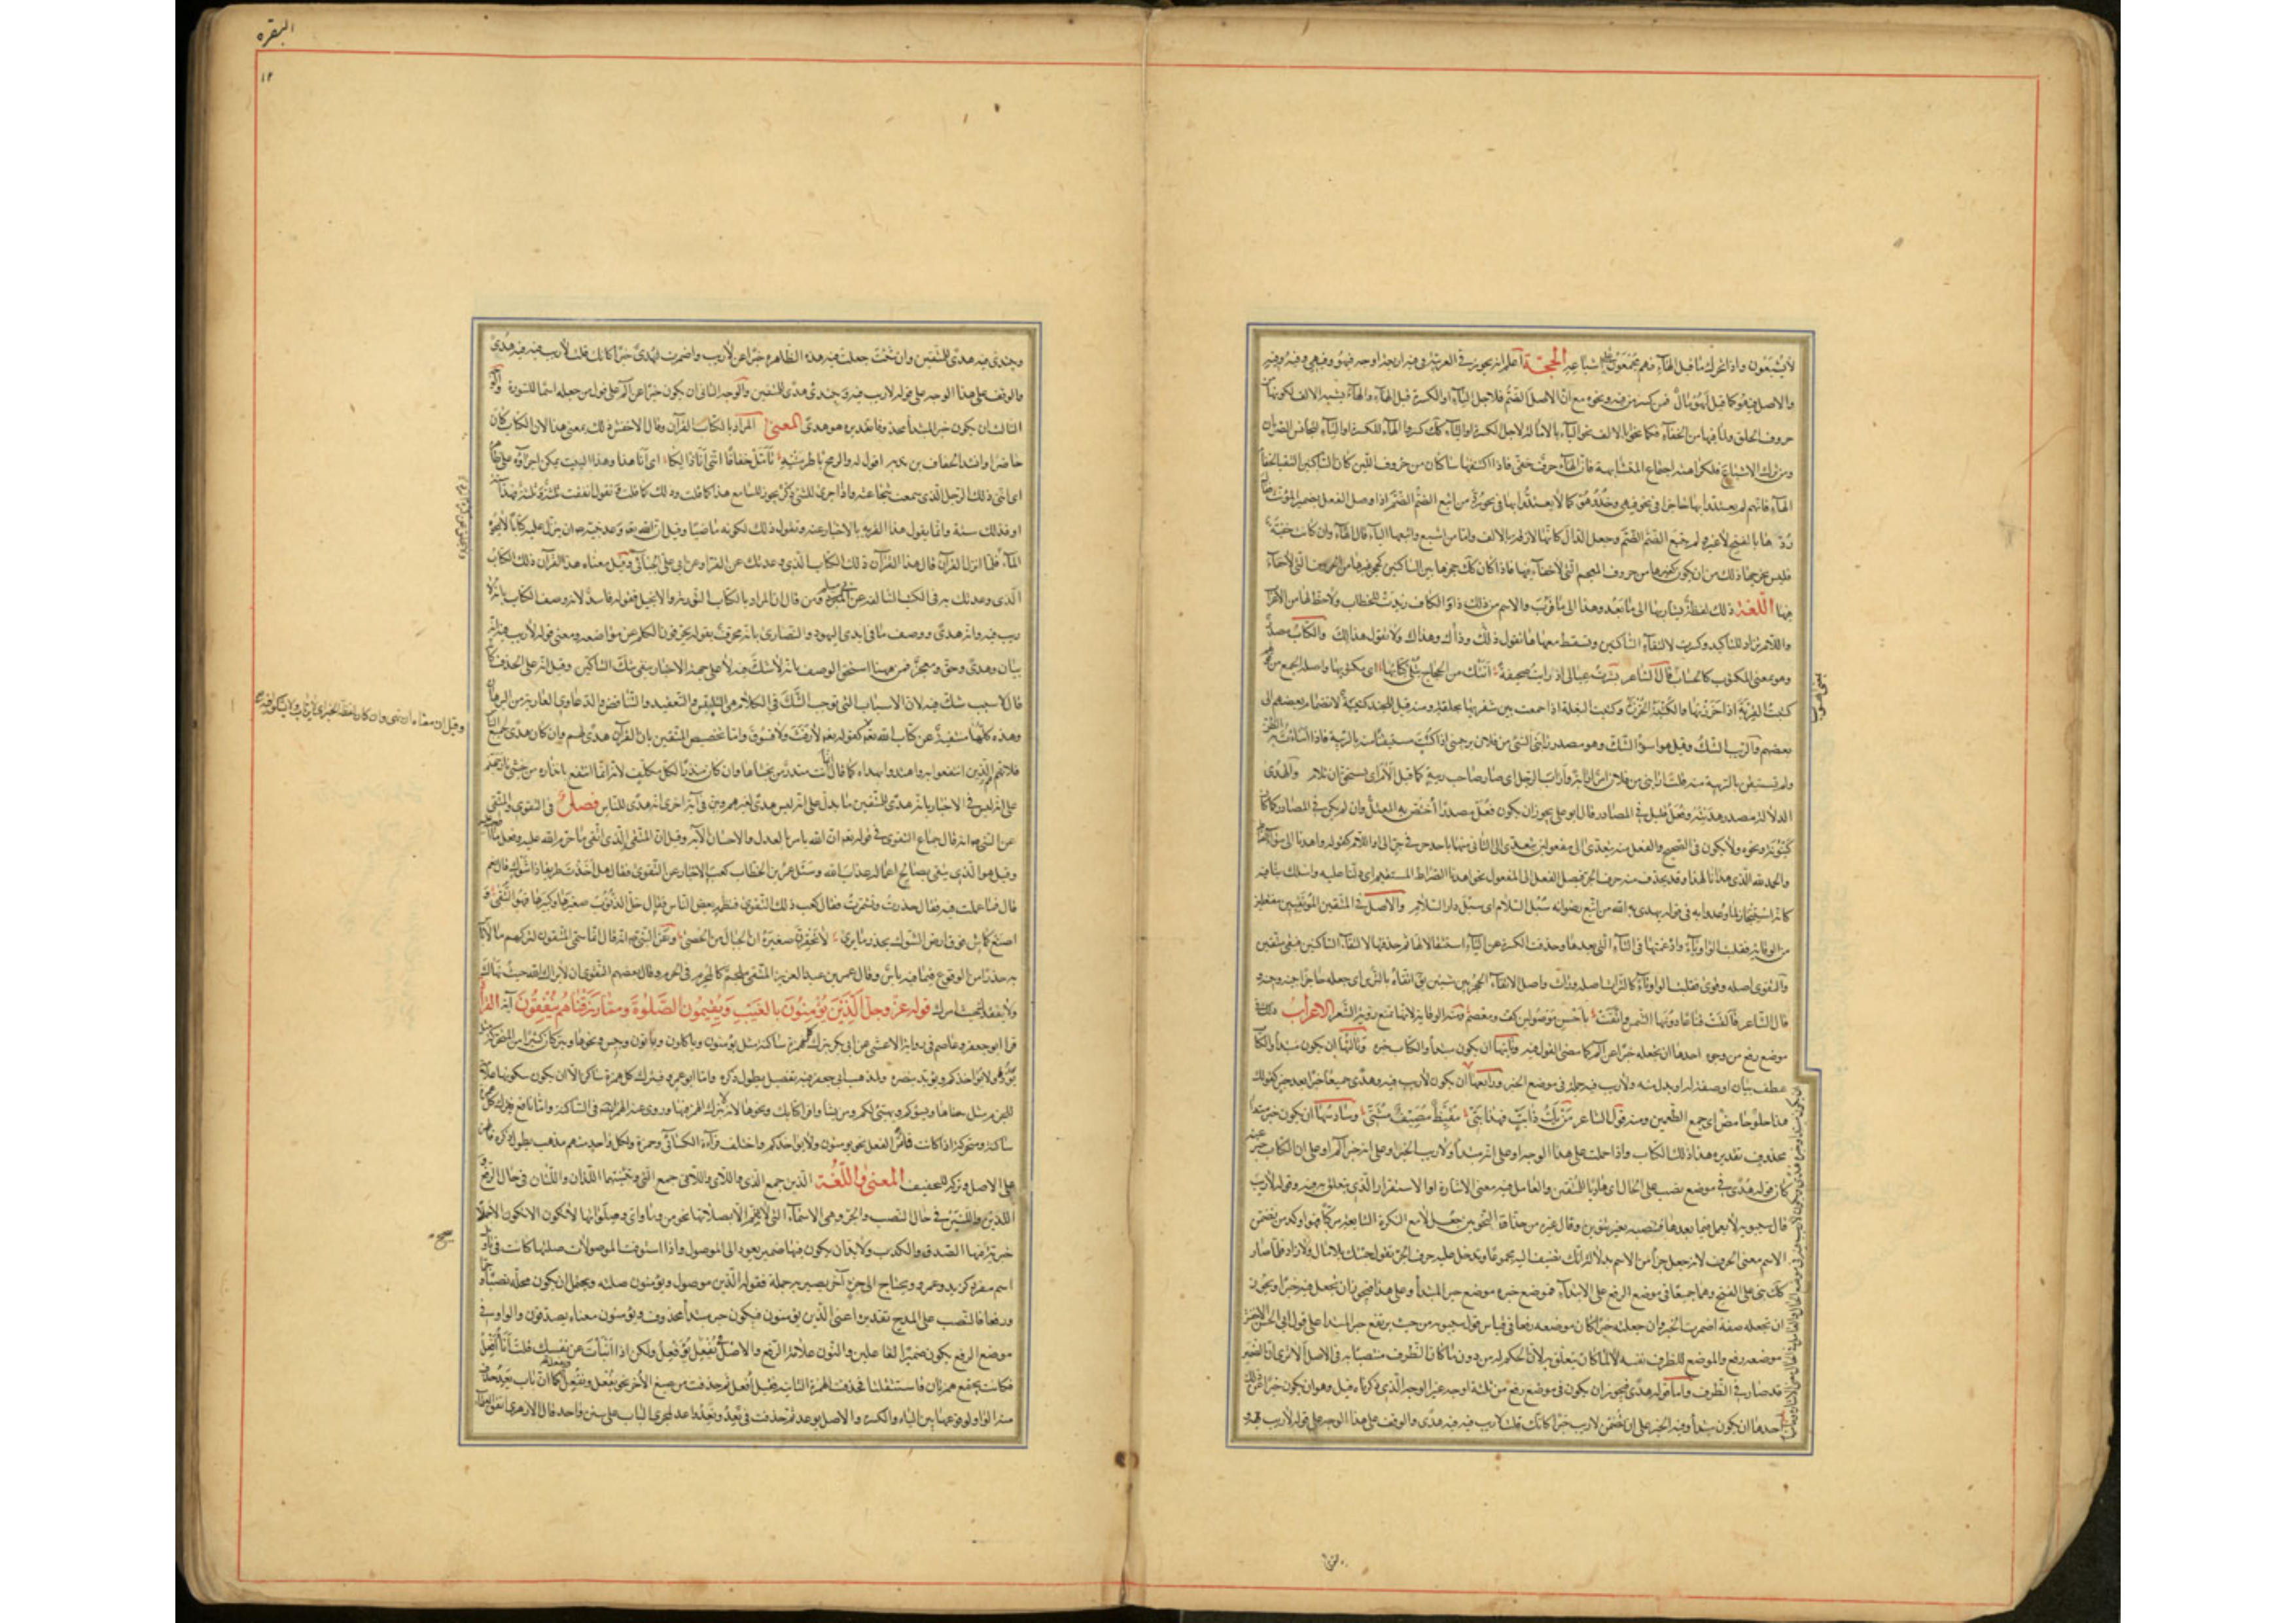 لا يشبعون واذا تحرك ما قبل الهاء فهم مجمعون على اشباعه الحجة اعلم انه يجوز في العربية في فيه اربعة اوجه فيهو وفيهي وفيه وفيه
والاصل فيهو كما قيل لهو مال فمن كسر من فيه ونحوه مع ان الاصل الضم فلاجل الياء او الكسرة قبل الهاء والهاء تشبه الالف لكونها من
حروف الحلق ولما فيها من الخفاء فكما نحوا بالالف نحو الياء بالامالة لاجل الكسرة او الياء كذلك كسروا الهاء للكسرة او الياء ليتجانس الصوتان
ومن ترك الاشباع فلكراهة اجتماع المتشابهة فان الهاء حرف خفي فاذا اكتنفها ساكنان من حروف اللين كان الساكنين التقيا لخفاء
الهاء فانهم لم يعتدوا بها حاجزا في نحو فيهي وخذوهو كما لا يعتدوا بها في نحو رد من اتبع الضم الضم اذا وصل الفعل بضمير المؤنث فقال
ردها بالفتح لا غير ولم يتبع الضم الضم وجعل الدال كانها لازقة بالالف واما من اشبع واتبعها الياء قال الهاء وان كانت خفية
فليس يخرجها ذلك من ان يكون كغيرها من حروف المعجم التي لا خفاء فيها فاذا كان كذلك حجزها بين الساكنين كحجز غيرها من الحروف التي لا خفاء
فيها اللغة ذلك لفظة يشار بها الى ما بعد وهذا الى ما قرب والاسم من ذلك ذا والكاف زيدت للخطاب ولا حظ لها من الاعراب
واللام تزاد للتاكيد وكسرت لالتقاء الساكنين وتسقط معها ها تقول ذلك وذاك وهذاك ولا تقول هذالك والكتاب مصدر
وهو بمعنى المكتوب كالحساب قال الشاعر بشرت عيالي اذ رايت صحيفة اتتك من الحجاج يتلى كتابها اي مكتوبها واصله الجمع من قولهم
كتبت القربة اذا خرزتها والكتبة الخرزة وكتبت البغلة اذا جمعت بين شفريها بحلقة ومنه قيل للجند كتيبة لانضمام بعضهم الى
بعضهم والريب الشك وقيل هو اسوأ الشك وهو مصدر رابني الشئ من فلان يريبني اذا كنت مستيقنا منه بالريبة فاذا اسأت به الظن
ولم تستيقن بالريبة منه قلت ارابني من فلان امر ارابة واراب الرجل اي صار صاحب ريبة كما قيل الام اي استحق ان يلام والهدى
الدلالة مصدر هديته وفعل قليل في المصادر قال ابو علي يجوز ان يكون فعل مصدرا اختص به المعتل وان لم يكن في المصادر كما كان
كينونة ونحوه ولا يكون في الصحيح والفعل منه يتعدى الى مفعولين يتعدى الى الثاني منهما باحد حرفي جر الى او اللام كقوله واهدنا الى سواء الصراط
والحمد لله الذي هدانا لهذا وقد يحذف منه حرف الجر فيصل الفعل الى المفعول نحو اهدنا الصراط المستقيم اي دلنا عليه واسلك بنا فيه
كانه استنجاز لما وعدوا به في قوله يهدي به الله من اتبع رضوانه سبل السلام اي سبل دار السلام والاصل في المتقين الموتقيين مفتعلين
من الوقاية فقلبت الواو تاء وادغمتها في التاء التي بعدها وحذفت الكسرة من الياء استثقالا لها ثم حذفتها لالتقاء الساكنين فبقي متقين
والتقوى اصله وقوى فقلبت الواو تاء كالتراث اصله وراث واصل الاتقاء الحجز بين شيئين يقال اتقاه بالترس اي جعله حاجزا بينه وبينه
قال الشاعر فالقت قناعا دونه الشمس واتقت باحسن موصولين كف ومعصم ومنه الوقاية لانها تمنع رؤية الشعر الاعراب ذلك في
موضع رفع من وجوه احدها ان تجعله خبرا عن الم كما مضى القول فيه وثانيها ان يكون مبتدأ والكتاب خبره وثالثها ان يكون مبتدأ والكتاب
عطف بيان او صفة له او بدل منه ولا ريب فيه جملة في موضع الخبر ورابعها ان يكون لا ريب فيه وهدى جميعا خبرا بعد خبر كقولك
هذا حلو حامض اي جمع الطعمين ومنه قول الشاعر من يك ذا بت فهذا بتي مقيظ مصيف مشتي وسادسها ان يكون خبر مبتدأ
محذوف تقديره هذا ذلك الكتاب واذا حملت على هذا الوجه او على انه مبتدأ ولا ريب الخبر او على انه خبر الم او على ان الكتاب خبر عنه
كان قوله هدى في موضع نصب على الحال اي هاديا للمتقين والعامل فيه معنى الاشارة او الاستقرار الذي يتعلق به فيه وقوله لا ريب
قال سيبويه لا يعمل فيما بعدها فتنصبه بغير تنوين وقال غيره من حذاق النحويين جعل لا مع النكرة الشايعة مركبا فهو اوكد من تضمن
الاسم معنى الحرف لانه جعل جزأ من الاسم بدلالة انك تضيف اليه مجموعا وتدخل عليه حرف الجر تقول جئتك بلا مال ولا زاد فلما صار
كذلك بني على الفتح وهما جميعا في موضع الرفع على الابتداء فموضع خبره موضع خبر المبتدأ وعلى هذا فيجوز ان تجعل فيه خبرا ويجوز
ان تجعله صفة اضمرت الخبر وان جعلته خبرا كان موضعه رفعا في قياس قول سيبويه من حيث يرتفع خبر المبتدا وعلى قول ابي الحسن الاخفش
موضعه رفع والموضع للظرف نفسه لا لما كان يتعلق به لان الحكم له من دون ما كان الظرف منتصبا به في الاصل الا ترى ان الضمير
قد صار في الظرف واما قوله هدى فيجوز ان يكون في موضع رفع من ثلاثة اوجه غير الوجه الذي ذكرناه قبل وهو ان يكون خبرا عن ذلك
احدها ان يكون مبتدأ وفيه الخبر على ان تضمن لا ريب خبرا كانك قلت لا ريب فيه فيه هدى والوقف على هذا الوجه على قوله لا ريب فيه و
البقره
١٢
ويبتدئ فيه هدى للمتقين وان شئت جعلت فيه هذه الظاهرة خبرا عن لا ريب واضمرت لهدى خبرا كانك قلت لا ريب فيه فيه هدى
والوقف على هذا الوجه على قوله لا ريب فيه ويبتدئ هدى للمتقين والوجه الثاني ان يكون خبرا عن الم على قول من جعله اسما للسورة والوجه
الثالث ان يكون خبر المبتدأ محذوفا تقديره هو هدى المعنى المراد بالكتاب القرآن وقال الاخفش ذلك بمعنى هذا لان الكتاب كان
حاضرا وانشد لخفاف بن ندبة اقول له والرمح ياطر متنه تامل خفافا انني انا ذلكا اي انا هذا وهذا البيت يمكن اجراؤه على ظاهره
اي انني ذلك الرجل الذي سمعت شجاعته واذا جرى للشئ ذكر يجوز للسامع هذا كما قلت وذلك كما قلت وتقول انفقت ثلثة وثلثة فهذا ستة
او فذلك ستة وانما يقول هذا لقربه بالاخبار عنه وتقول ذلك لكونه ماضيا وقيل ان الله تعالى وعد نبيه ان ينزل عليه كتابا لا يمحوه
الماء فلما انزل القرآن قال هذا القرآن ذلك الكتاب الذي وعدتك عن الفراء وعن ابي علي الجبائي وقيل معناه هذا القرآن ذلك الكتاب
الذي وعدتك به في الكتب السالفة عن المبرد ومن قال ان المراد بالكتاب التورية والانجيل فقوله فاسد لانه وصف الكتاب بانه لا
ريب فيه وانه هدى ووصف ما في ايدي اليهود والنصارى بانه محرف بقوله يحرفون الكلم عن مواضعه ومعنى قوله لا ريب فيه انه
بيان وهدى وحق ومعجز فمن ههنا استحق الوصف بانه لا شك فيه لا على جهة الاخبار بنفي شك الشاكين وقيل انه على الحذف كانه
قال لا سبب شك فيه لان الاسباب التي توجب الشك في الكلام هي التلبيس والتعقيد والتناقض والدعاوي العارية من البرهان
وهذه كلها منفية عن كتاب الله تعالى كقوله تعالى لا رفث ولا فسوق واما تخصيص المتقين بان القرآن هدى لهم وان كان هدى لجميع الناس
فلانهم هم الذين انتفعوا به واهتدوا بهداه كما قال انما انت منذر من يخشاها وان كان منذرا لكل مكلف لانه انما انتفع بانذاره من يخشى نار جهنم
على انه ليس في الاخبار بانه هدى للمتقين ما يدل على انه ليس هدى لغيرهم وبين في آية اخرى انه هدى للناس فصل في التقوى والمتقي
عن النبي انه قال جماع التقوى في قوله تعالى ان الله يامر بالعدل والاحسان الآية وقيل ان المتقي الذي اتقى ما حرم الله عليه وفعل ما
وقيل هو الذي يتقي بصالح اعماله عذاب الله وسئل عمر بن الخطاب كعب الاحبار عن التقوى فقال هل اخذت طريقا ذا شوك قال نعم
قال فما عملت فيه فقال حذرت وتشمرت فقال كعب ذلك التقوى فنظمه بعض الناس فقال خل الذنوب صغيرها وكبيرها فهو التقى و
اصنع كماش فوق ارض الشوك يحذر ما يرى لا تحقرن صغيرة ان الجبال من الحصى وعن النبي انه قال انما سمي المتقون لتركهم ما لا باس
به حذرا من الوقوع فيما فيه باس وقال عمر بن عبد العزيز المتقي ملجم كالمحرم في الحرم وقال بعضهم التقوى ان لا يراك الله حيث نهاك
ولا يفقدك حيث امرك قوله عز وجل الذين يؤمنون بالغيب ويقيمون الصلوة ومما رزقناهم ينفقون آية القراءة
قرا ابو جعفر وعاصم في رواية الاعشى عن ابي بكر بترك كل همزة ساكنة مثل يؤمنون وياكلون وياتون وبئس ونحوها ويتركان كثيرا من المتحركة
يؤده ولا يؤاخذكم ويؤيد بنصره ولمذهب ابي جعفر فيه تفصيل يطول ذكره واما ابو عمرو فيترك كل همزة ساكنة الا ان يكون سكونها علامة
للجزم مثل ننساها وتسؤكم ويهيئ لكم ومن يشأ واقرا كتابك ونحوها لانه لا يترك الهمز فيها وروى عنه الهمز ايضا في الساكنة واما نافع فيترك كل همزة
ساكنة ومتحركة اذا كانت فاء من الفعل نحو يومنون ولا يواخذكم واختلف قراءة الكسائي وحمزة ولكل واحد منهم مذهب يطول ذكره فالهمز
على الاصل وتركه للتخفيف المعنى واللغة الذين جمع الذي واللائي واللاتي جمع التي وتثنيتهما اللذان واللتان في حال الرفع و
اللذين واللتين في حال النصب والجر وهي الاسماء التي لا تتم الا بصلاتها نحو من وما واي وصلاتها لا تكون الا جملا
خبرية يصح فيها الصدق والكذب ولا بد ان يكون فيها ضمير يعود الى الموصول واذا استوفت الموصولات صلتها كانت في تاويل
اسم مفرد كزيد وعمرو ويحتاج الى جزء آخر يصير به جملة فقوله الذين موصول ويؤمنون صلته ويحتمل ان يكون محله نصبا وجرا
ورفعا فالنصب على المدح تقديره اعني الذين يؤمنون فيكون خبر مبتدأ محذوف ويؤمنون معناه يصدقون والواو في
موضع الرفع يكون ضمير الفاعلين والنون علامة الرفع والاصل في يفعل يؤفعل ولكن اذا انبأت عن نفسك قلت انا افعل
فكانت تجتمع همزتان فاستثقلتا فحذفت الهمزة الثانية فقيل افعل ثم حذفت من صيغ الاخر نحو يفعل وتفعل كما ان باب يعد حذفت
منه الواو لوقوعها بين الياء والكسرة والاصل يوعد ثم حذفت في تعد ونعد واعد ليجري الباب على سنن واحد قال الازهري اتفق العلماء
صح